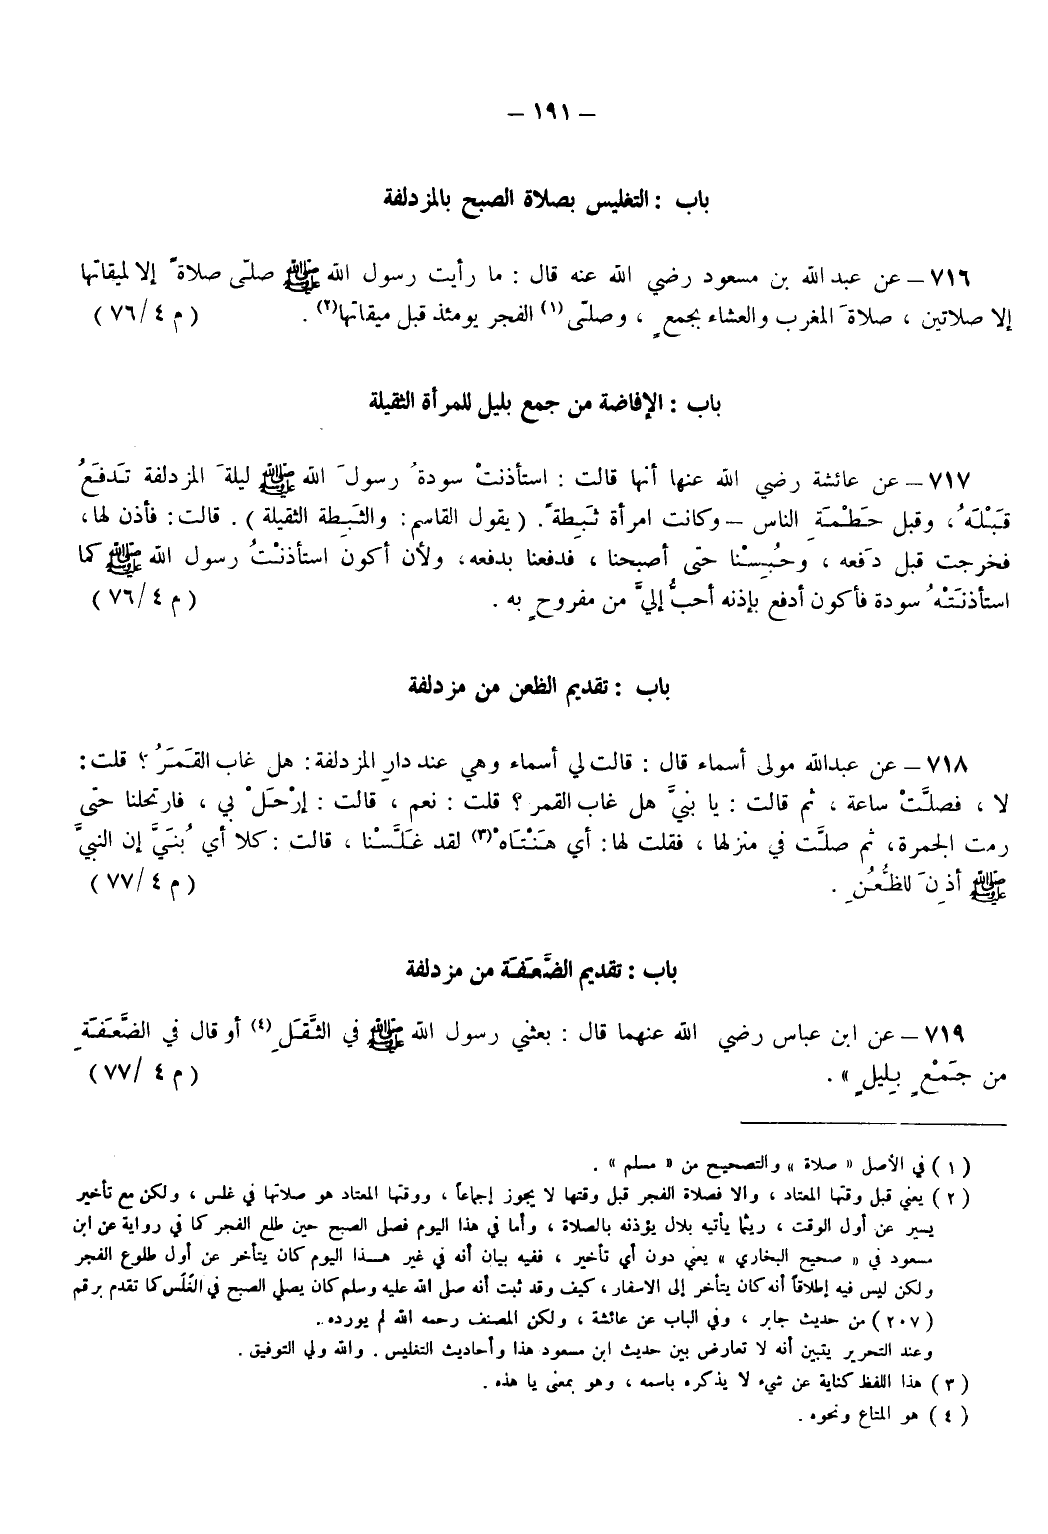 – ١٩١ –
باب : التغليس بصلاة الصبح بالمزدلفة
٧١٦ – عن عبد الله بن مسعود رضي الله عنه قال : ما رأيت رسول الله ﷺ صلّى صلاةً إلا لميقاتها
إلا صلاتين ، صلاةَ المغرب والعشاء بجمعٍ ، وصلّى(١) الفجر يومئذ قبل ميقاتها(٢) . ( م ٤/ ٧٦ )
باب : الإفاضة من جمع بليل للمرأة الثقيلة
٧١٧ – عن عائشة رضي الله عنها أنها قالت : استأذنتْ سودةُ رسولَ الله ﷺ ليلةَ المزدلفة تَدفَعُ
قَبْلَهُ ، وقبل حَطْمَةِ الناس – وكانت امرأة ثَبِطةً. ( يقول القاسم : والثَبِطة الثقيلة ) . قالت : فأذن لها ،
فخرجت قبل دَفعه ، وحُبِسْنا حتى أصبحنا ، فدفعنا بدفعه ، ولأن أكون استأذنْتُ رسول الله ﷺ كما
استأذنَتْهُ سودة فأكون أدفع بإذنه أحبُّ إليَّ من مفروحٍ به . ( م ٤/ ٧٦ )
باب : تقديم الظعن من مزدلفة
٧١٨ – عن عبدالله مولى أسماء قال : قالت لي أسماء وهي عند دارِ المزدلفة : هل غاب القَمَرُ ؟ قلت :
لا ، فصلَّتْ ساعة ، ثم قالت : يا بنيَّ هل غاب القمر ؟ قلت : نعم ، قالت : إرْحَلْ بي ، فارتحلنا حتى
رمت الجمرة ، ثم صلَّت في منزلها ، فقلت لها : أي هَنْتَاهْ(٣) لقد غَلَّسْنا ، قالت : كلا أي بُنَيَّ إن النبيَّ
ﷺ أذِنَ للظُّعُنِ . ( م ٤/ ٧٧ )
باب : تقديم الضَّعَفَة من مزدلفة
٧١٩ – عن ابن عباس رضي الله عنهما قال : بعثني رسول الله ﷺ في الثَّقَلِ(٤) أو قال في الضَّعَفَةِ
من جَمْعٍ بِليلٍ » . ( م ٤ /٧٧ )
( ١ ) في الأصل « صلاة » والتصحيح من « مسلم » .
( ٢ ) يعني قبل وقتها المعتاد ، والا فصلاة الفجر قبل وقتها لا يجوز إجماعاً ، ووقتها المعتاد هو صلاتها في غلس ، ولكن مع تأخير
يسير عن أول الوقت ، ريثما يأتيه بلال يؤذنه بالصلاة ، وأما في هذا اليوم فصلى الصبح حين طلع الفجر كما في رواية عن ابن
مسعود في « صحيح البخاري » يعني دون أي تأخير ، ففيه بيان أنه في غير هـــذا اليوم كان يتأخر عن أول طلوع الفجر
ولكن ليس فيه إطلاقاً أنه كان يتأخر إلى الاسفار ، كيف وقد ثبت أنه صلى الله عليه وسلم كان يصلي الصبح في الغَلَس كما تقدم برقم
( ٢٠٧ ) من حديث جابر ، وفي الباب عن عائشة ، ولكن المصنف رحمه الله لم يورده .
وعند التحرير يتبين أنه لا تعارض بين حديث ابن مسعود هذا وأحاديث التغليس . والله ولي التوفيق .
( ٣ ) هذا اللفظ كناية عن شيء لا يذكره باسمه ، وهو بمعنى يا هذه .
( ٤ ) هو المتاع ونحوه .